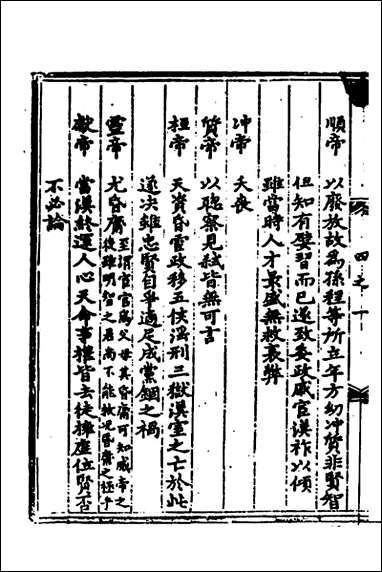 四之十
順帝 以廢放故為孫程等所立年方幼冲質非賢智
但知有嬖習而已遂致委政戚宦漢祚以傾
雖當時人才最盛無救衰弊
冲帝 夭喪
質帝 以聡察見弑皆無可言
桓帝 天資昏霊政移五侯淫刑三獄漢室之亡於此
遂决雖忠賢自爭適足成黨錮之禍
靈帝 尤昏庸
至謂宦官為父母其昏庸可知威帝之
後雖明智之君尚不能救况昏庸之極乎
獻帝 當漢終運人心天命事權皆去徒擁虛位賢否
不必論